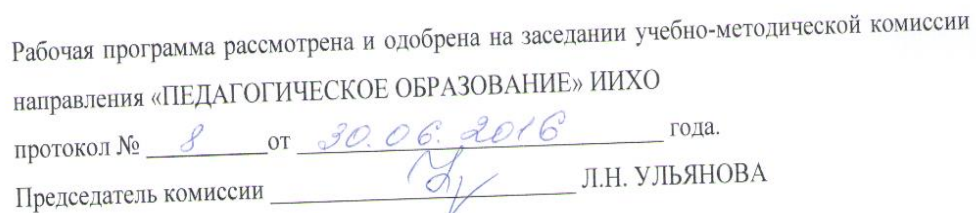 Рабочая программа рассмотрена и одобрена на заседании учебно-методической комиссии
направления «ПЕДАГОГИЧЕСКОЕ ОБРАЗОВАНИЕ» ИИХО
протокол № 8 от 30.06.2016 года.
Председатель комиссии Л.Н. УЛЬЯНОВА